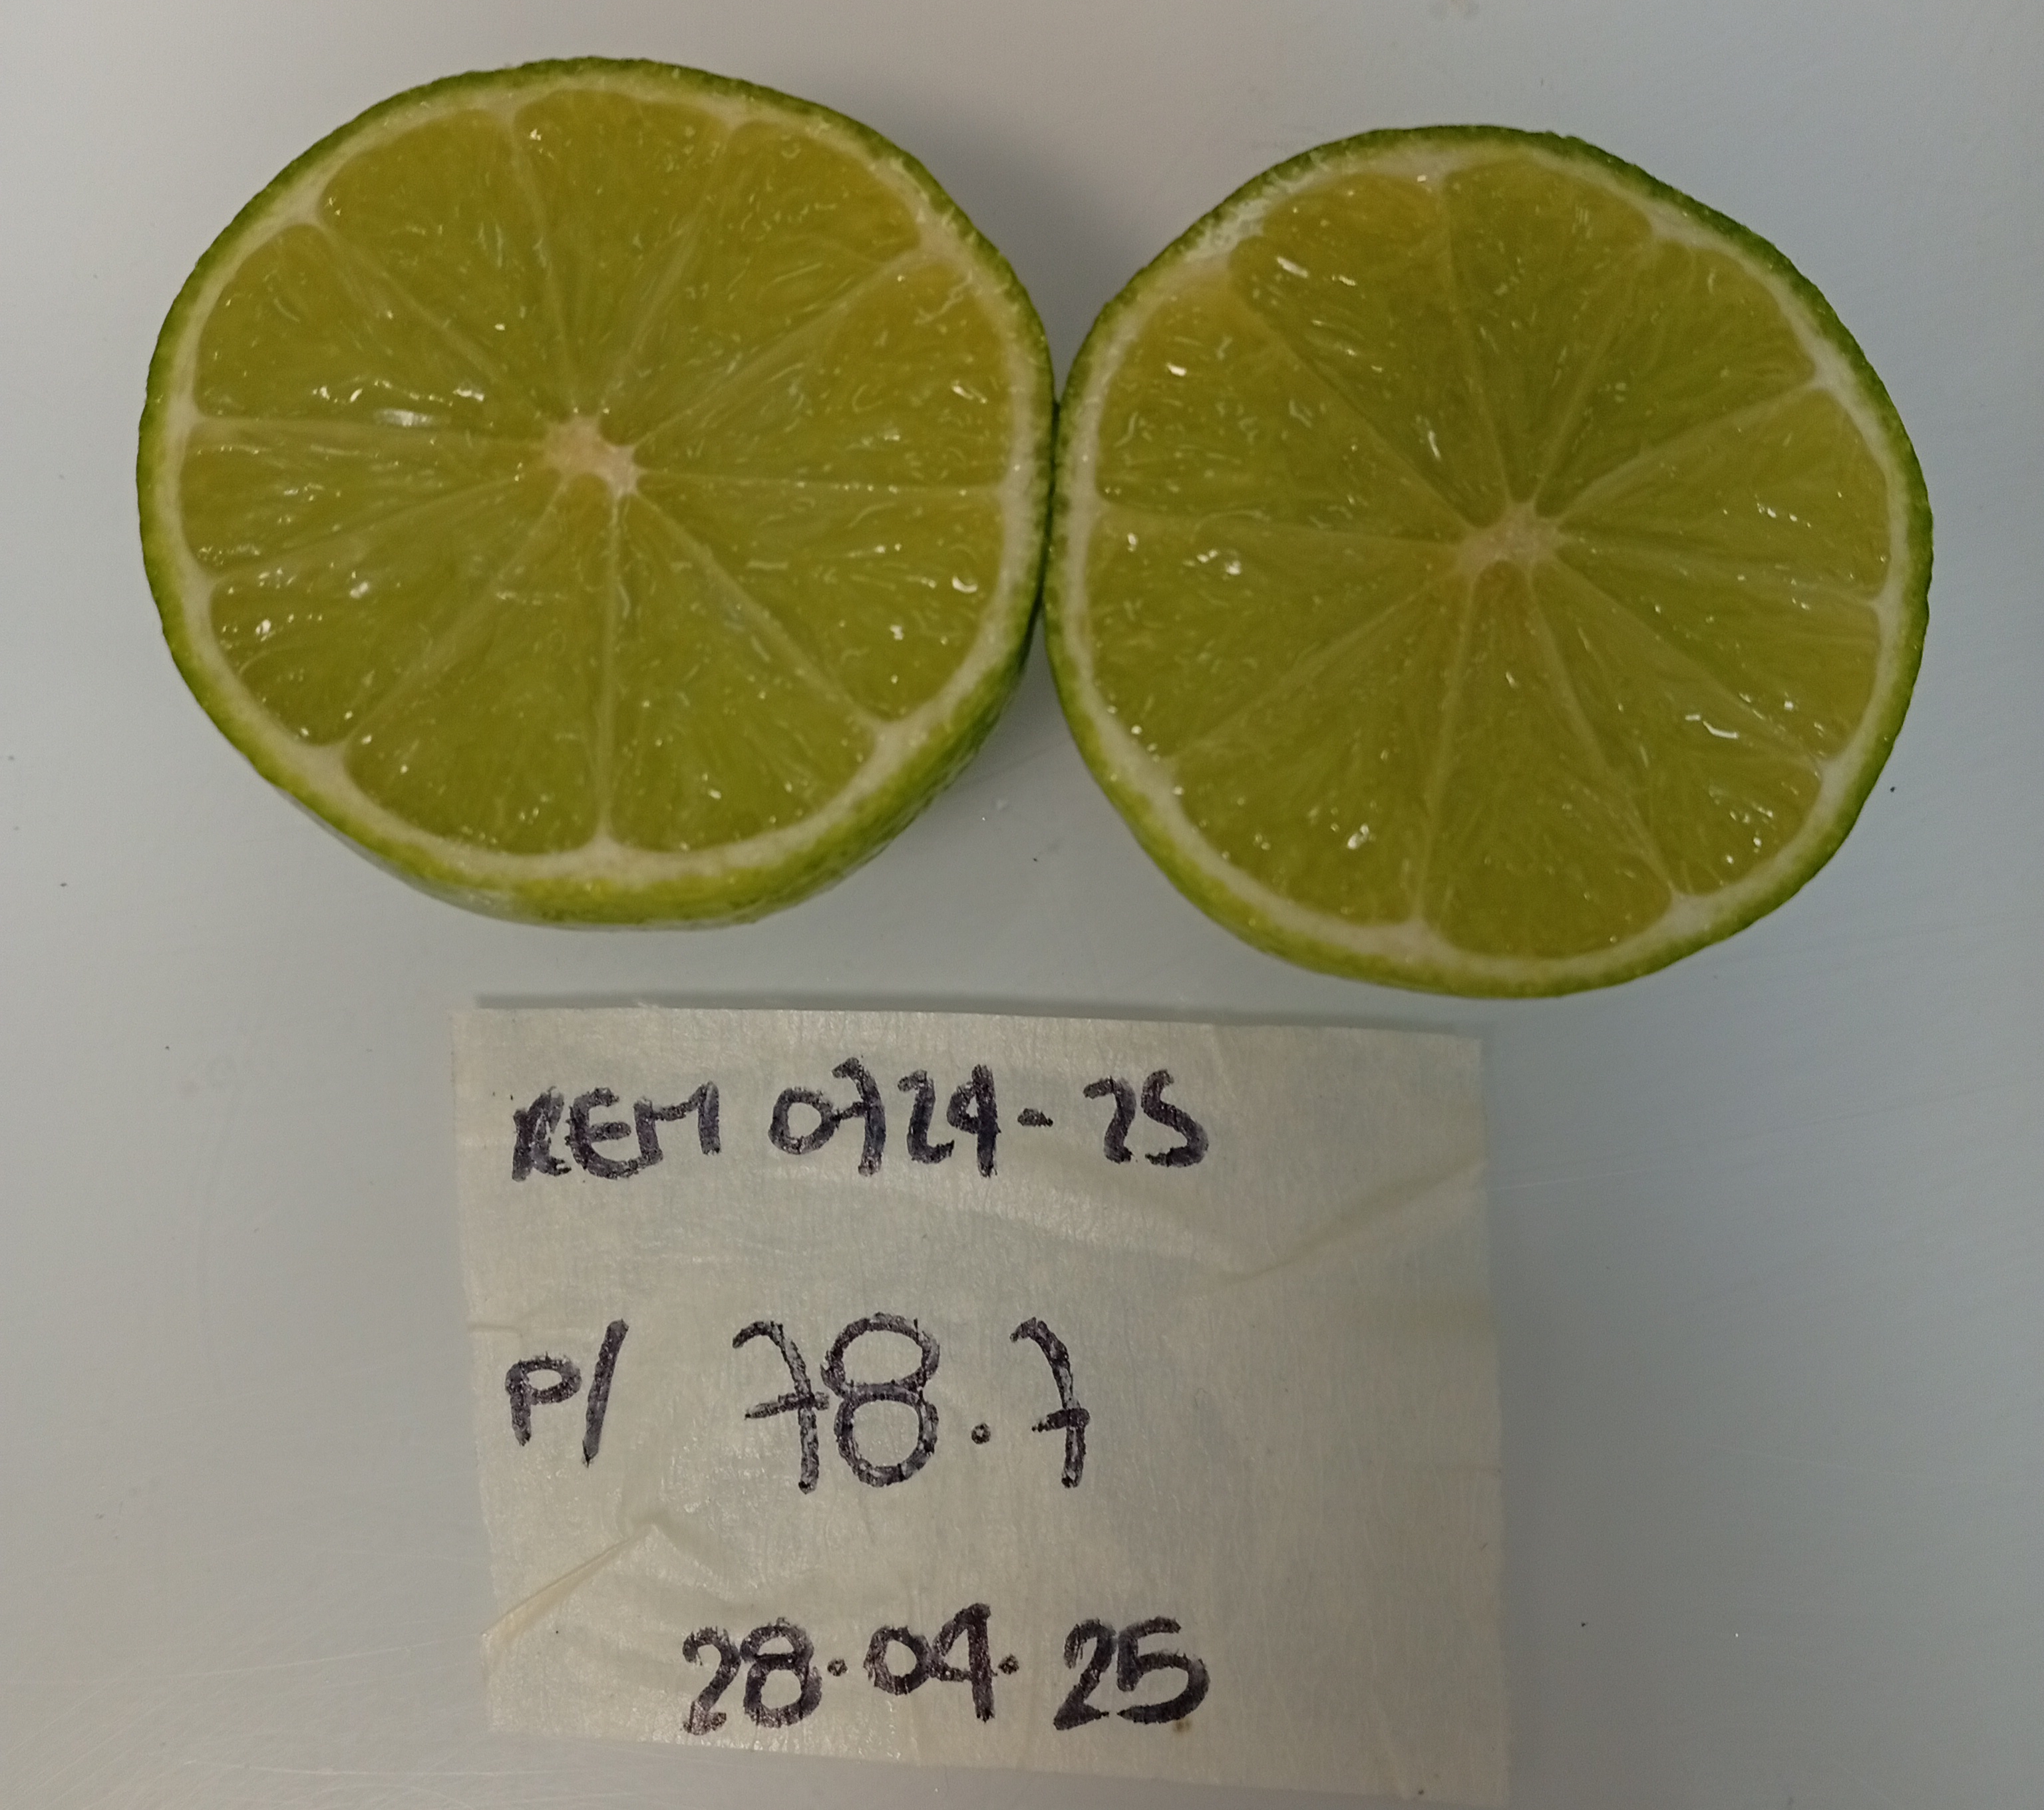 REM 0724-25
P/ 78.7
28.04.25